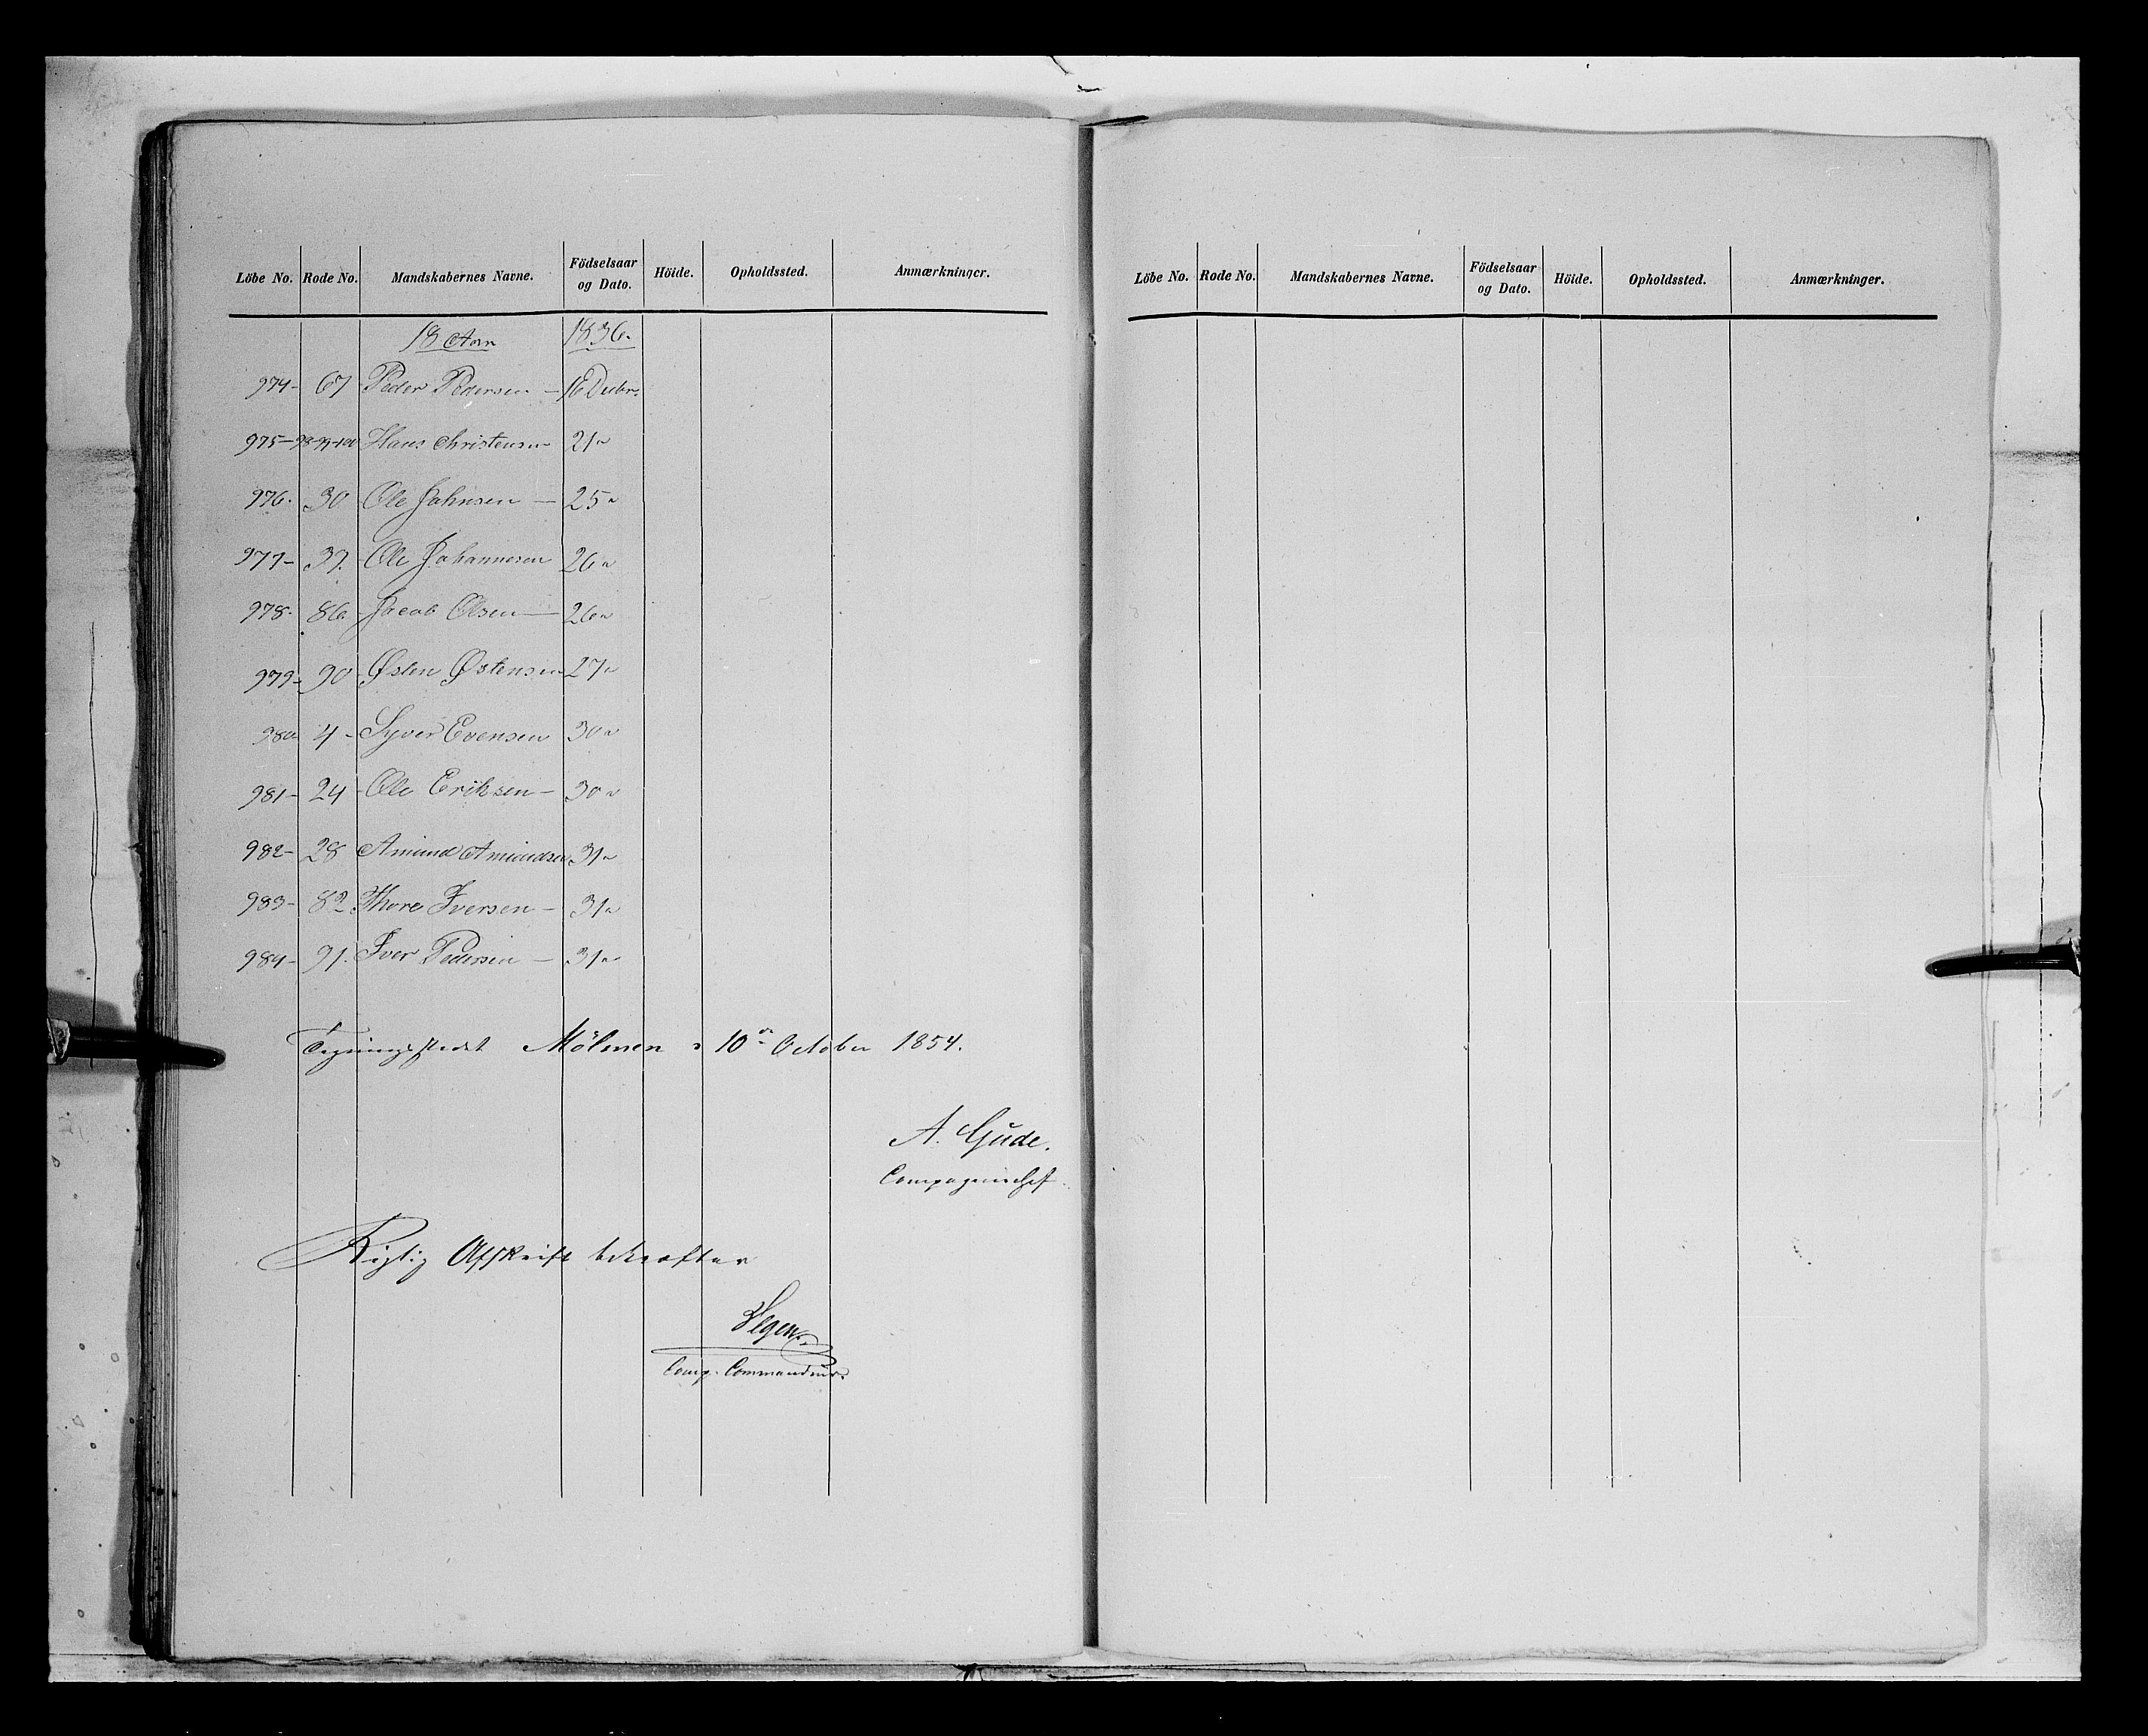 Löbe No. Rode No. Mandskabernes Navne. Födselsaar og Dato. Höide. Opholdssted. Anmærkninger.
18 Aar 1836.
974- 67 Peder Pedersen - 16 Decbr.
975- 98-99-100 Hans Christensen 21 "
976. 30 Ole Johnsen - 25 "
977- 37. Ole Johannesen 26 "
978. 86. Jacob Olsen - 26 "
979- 90 Østen Østensen 27 "
980 4 - Syver Evensen 30 "
981- 24 Ole Eriksen - 30 "
982- 28 Amund Amundsen 31 "
983- 82. Thore Iversen - 31 "
984- 91. Iver Pedersen - 31 "
Tegningsstedet Mölmen 10de October 1854.
A. Gude.
Compagniechef
Rigtig Afskrift bekræfter
Comp. Commandeur.
Löbe No. Rode No. Mandskabernes Navne. Födselsaar og Dato. Höide. Opholdssted. Anmærkninger.